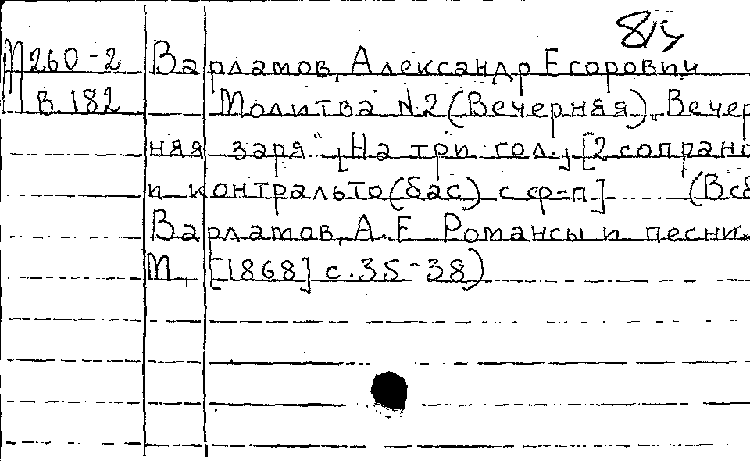 М260-2 Варламов, Александр Егорович
В 182 Молитва №2 (Вечерняя) „Вечер
няя заря" [На три гол.] [2 сопрано
и контральто (бас) с ф-п] (В сб
Варламов, А. Е. Романсы и песни.
М, [1868] с. 35-38)